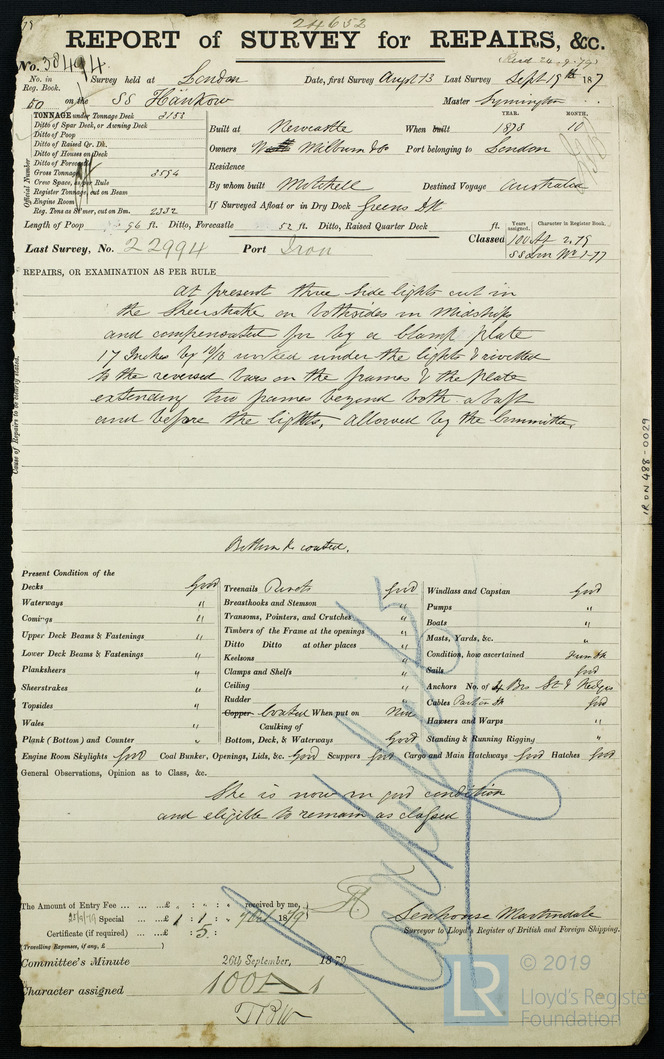 24652
REPORT of SURVEY for REPAIRS, &c.
No. 38494
No. in Reg. Book. Survey held at London Date, first Survey Augst 13 Last Survey Sept 19th 187
50 on the SS Hankow Master Symington
TONNAGE under Tonnage Deck 3153
Ditto of Spar Deck, or Awning Deck
Ditto of Poop
Ditto of Raised Qr. Dk.
Ditto of Houses on Deck
Ditto of Forecastle
Gross Tonnage 3594
Crew Space, as per Rule
Register Tonnage, cut on Beam
Engine Room
Reg. Tons as Steamer, cut on Bm. 2332
Official Number
YEAR. MONTH.
Built at Newcastle When built 1873 10
Owners Milburn &Co Port belonging to London
Residence
By whom built Mitchell Destined Voyage Australia
If Surveyed Afloat or in Dry Dock Greens Dk
Length of Poop 96 ft. Ditto, Forecastle 52 ft. Ditto, Raised Quarter Deck ft.
Years assigned. Character in Register Book.
Classed 100A1 2.79
SS Lon No 1-77
Last Survey, No. 22994 Port Iron
REPAIRS, OR EXAMINATION AS PER RULE
At present three side lights cut in
the Sheerstrake on both sides in Midships
and compensated for by a clamp plate
17 Inches by worked under the lights & rivetted
to the reversed bars on the frames & the plate
extending two frames beyond both abaft
and before the lights, allowed by the Committee.
Cause of Repairs to be clearly stated.
IRON 488-0029
Bottom coated.
Present Condition of the
Decks Good
Waterways "
Comings "
Upper Deck Beams & Fastenings "
Lower Deck Beams & Fastenings "
Planksheers "
Sheerstrakes "
Topsides "
Wales "
Plank (Bottom) and Counter "
Treenails Rivets Good
Breasthooks and Stemson "
Transoms, Pointers, and Crutches "
Timbers of the Frame at the openings "
Ditto Ditto at other places "
Keelsons "
Clamps and Shelfs "
Ceiling "
Rudder "
Copper Coated When put on Now
Caulking of
Bottom, Deck, & Waterways Good
Windlass and Capstan Good
Pumps "
Boats "
Masts, Yards, &c. "
Condition, how ascertained from Dk
Sails Good
Anchors No. of 4 Brs St & Kedges
Cables Good
Hawsers and Warps "
Standing & Running Rigging "
Engine Room Skylights Good Coal Bunker, Openings, Lids, &c. Good Scuppers Good Cargo and Main Hatchways Good Hatches Good
General Observations, Opinion as to Class, &c.
She is now in good condition
and eligible to remain as classed
The Amount of Entry Fee £ : : received by me,
Special £ 1 : 1 : 1879
Certificate (if required) £ : 5 :
(Travelling Expenses, if any, £ )
Senhouse Martindale
Surveyor to Lloyd's Register of British and Foreign Shipping.
Committee's Minute 26th September, 1879
Character assigned 100A1
© 2019
LR
Lloyd's Register
Foundation